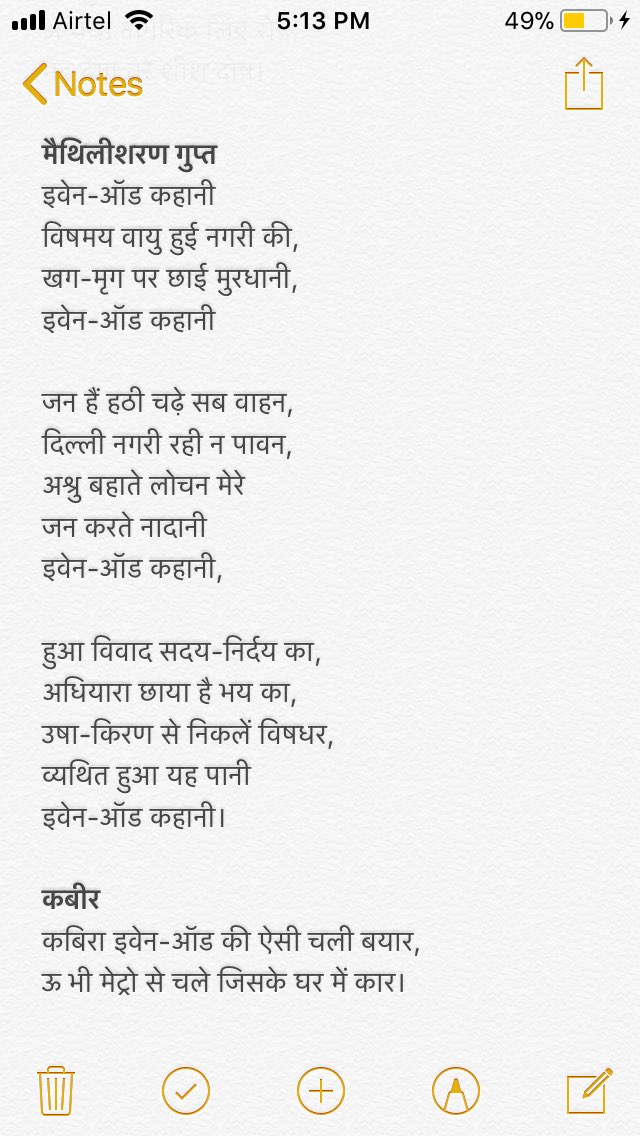 Airtel 5:13 PM 49%
Notes
मैथिलीशरण गुप्त
इवेन-ऑड कहानी
विषमय वायु हुई नगरी की,
खग-मृग पर छाई मुरधानी,
इवेन-ऑड कहानी
जन हैं हठी चढ़े सब वाहन,
दिल्ली नगरी रही न पावन,
अश्रु बहाते लोचन मेरे
जन करते नादानी
इवेन-ऑड कहानी,
हुआ विवाद सदय-निर्दय का,
अधियारा छाया है भय का,
उषा-किरण से निकलें विषधर,
व्यथित हुआ यह पानी
इवेन-ऑड कहानी।
कबीर
कबिरा इवेन-ऑड की ऐसी चली बयार,
ऊ भी मेट्रो से चले जिसके घर में कार।